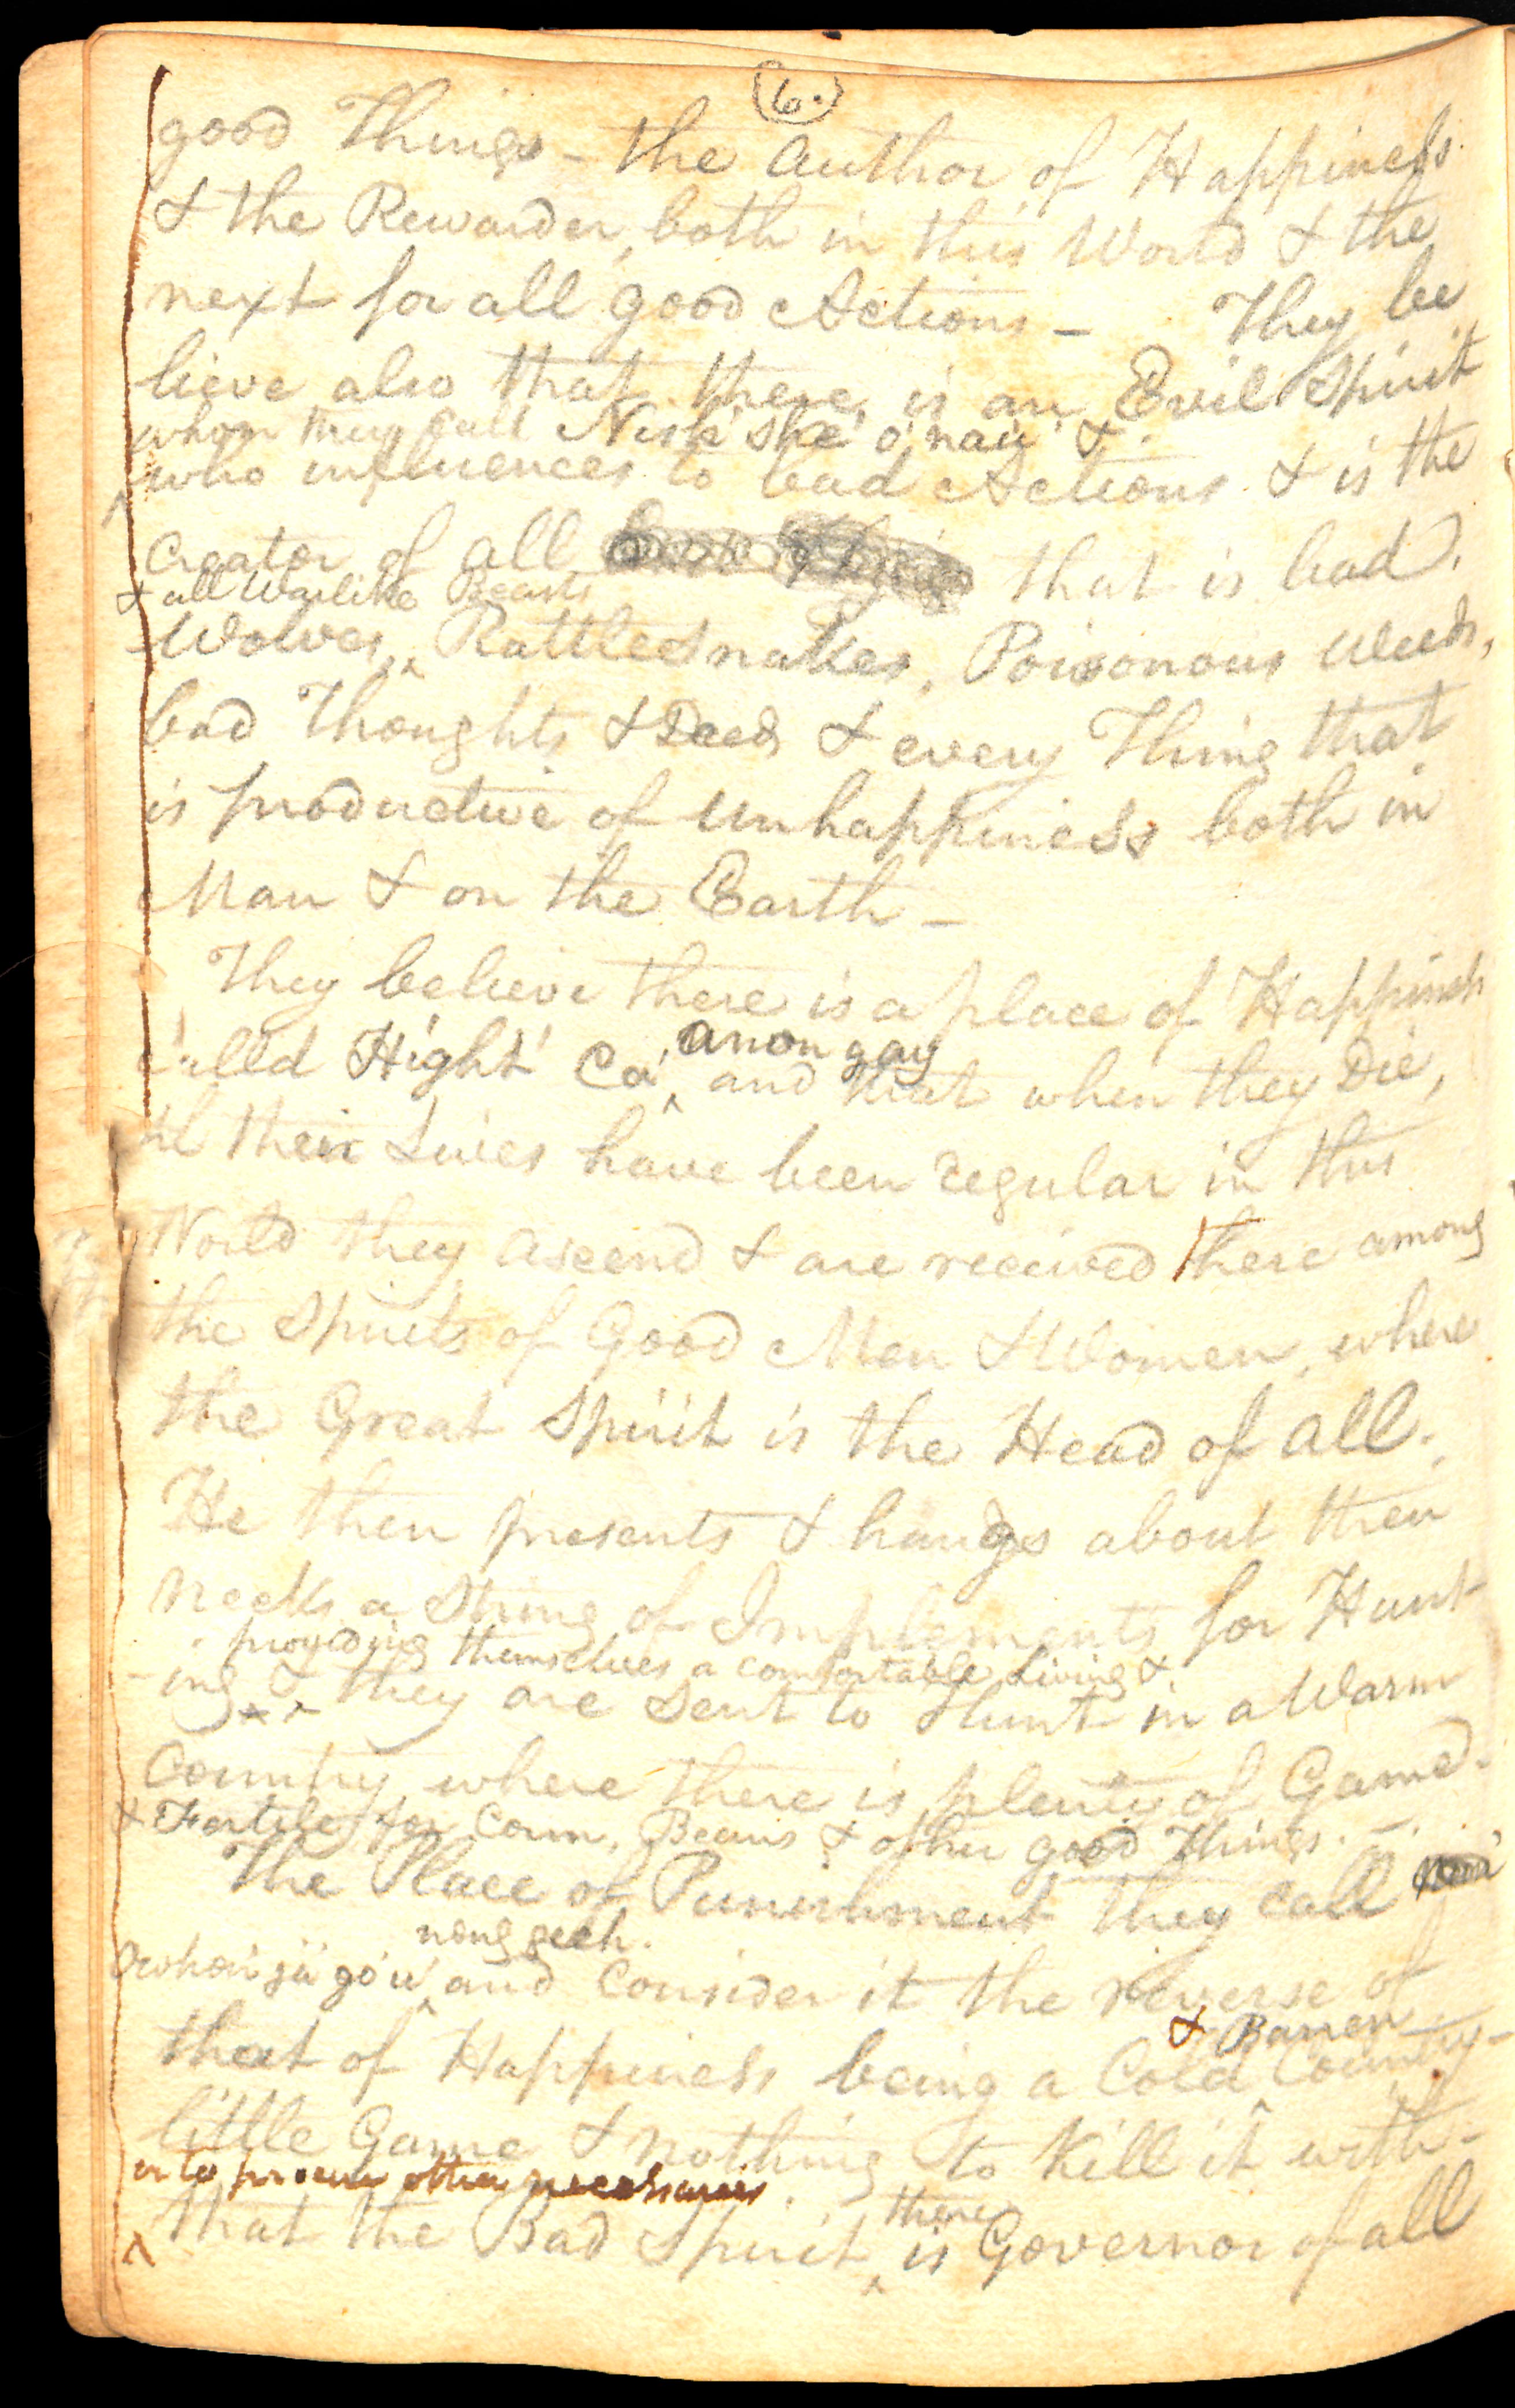 (6.)
good Things - the Author of Happiness
& the Rewarder, both in this World & the
next for all good Actions - They be
lieve also that there is an Evil Spirit
whom they Call Nish' she' o' nau' &
who influences to bad Actions & is the
Creator of all that is bad.
& all Warlike Beasts
Wolves, Rattlesnakes, Poisonous Weeds,
bad Thoughts & Deeds & every Thing that
is productive of Unhappiness both in
Man & on the Earth -
They believe there is a place of Happiness
anongay
called High't' Ca', and that when they Die,
if their Lives have been regular in this
World they ascend & are received there among
the Spirits of Good Men & Women, where
the Great Spirit is the Head of all.
He then presents & hangs about their
Necks a String of Implements for Hunt
providing themselves a comfortable Living &
-ing & they are sent to Hunt in a Warm
Country where there is plenty of Game.
& Fertile for Corn, Beans & other good Things. -
The Place of Punishment they call
nonggech.
and Consider it the reverse of
& Barren
that of Happiness being a Cold Country -
little Game & nothing to Kill it with -
or to procure other necessaries.
there
That the Bad Spirit is Governor of all